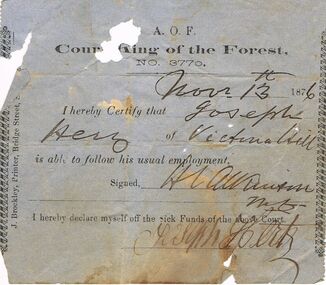 A. O. F.
Court King of the Forest,
NO. 3770.
Novr. 13th 1876
I hereby Certify that Joseph
Herz of Victoria Hill
is able to follow his usual employment.
Signed,
I hereby declare myself off the sick Funds of the above Court.
Joseph Herz
J. Breckley, Printer, Bridge Street, S